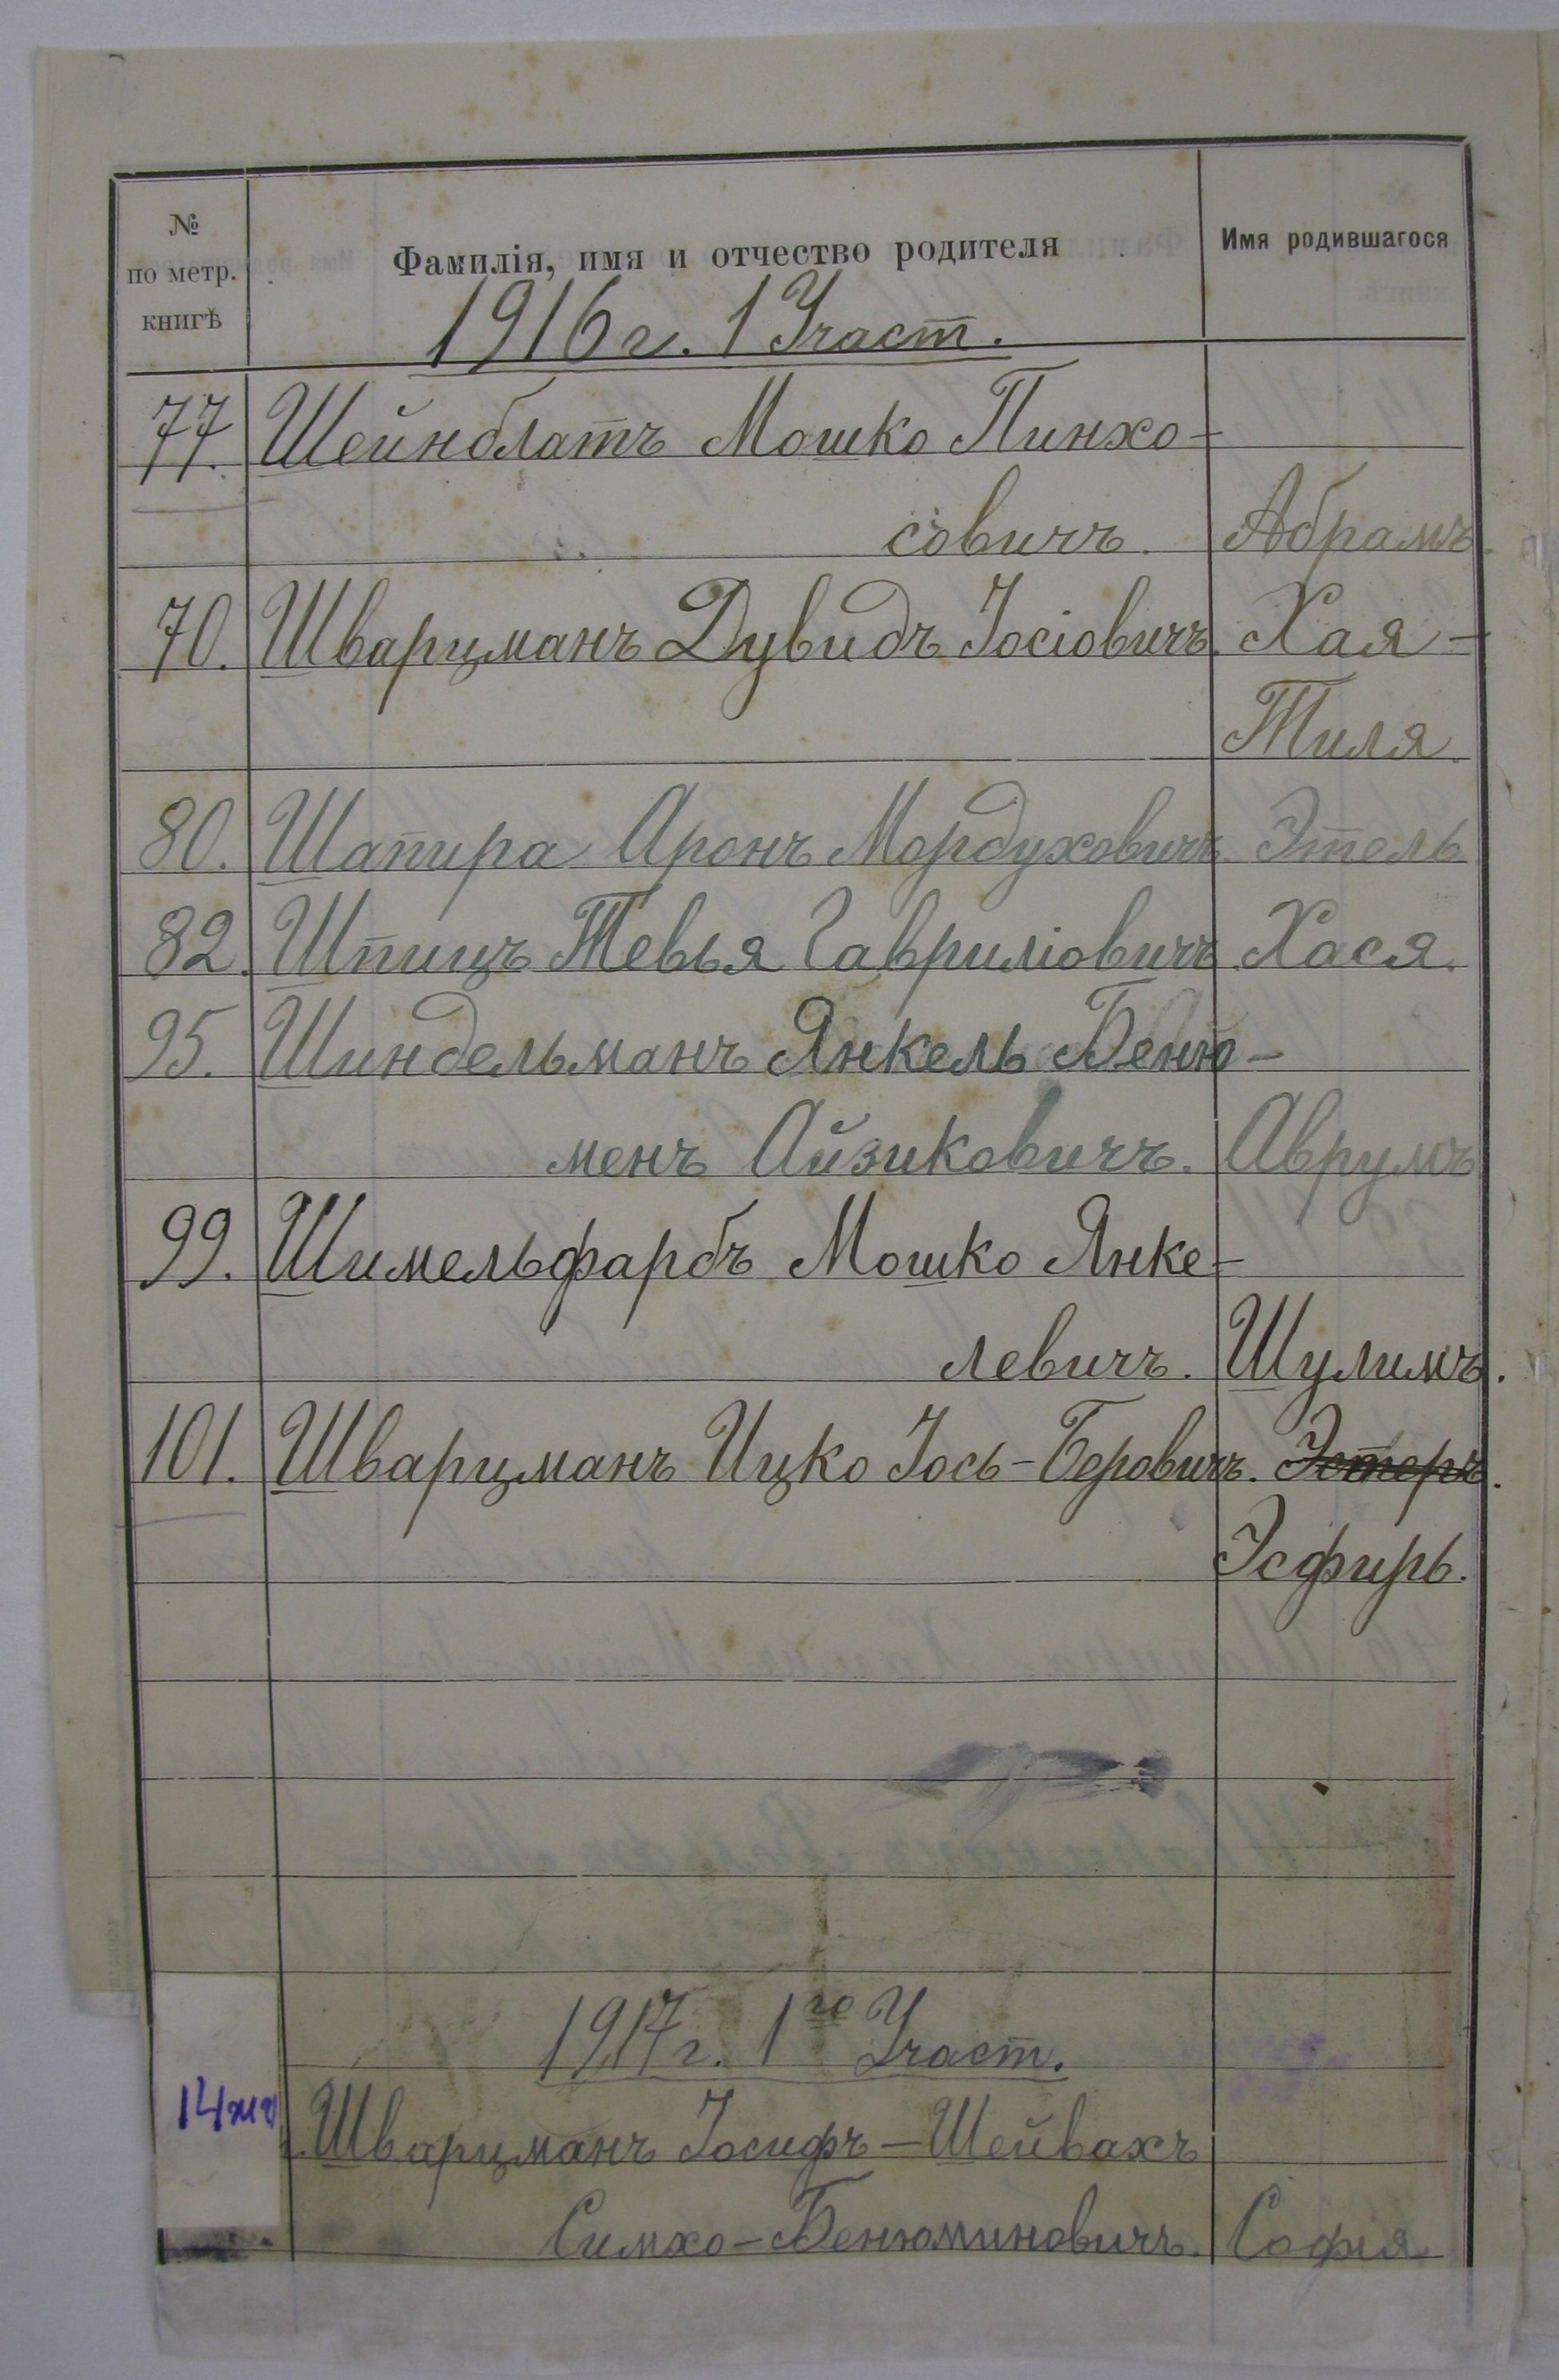 № по метр. книгѣ
Фамилія, имя и отчество родителя
Имя родившагося
1916 г. 1 Участ.
77. Шейнблатъ Мошко Пинхо-
совичъ. Абрамъ.
70. Шварцманъ Дувидъ Іосіовичъ. Хая-
Тиля.
80. Шапира Аронъ Мордуховичъ. Этель
82. Шпицъ Тевья Гавриліовичъ. Хася.
95. Шиндельманъ Янкель Беню-
менъ Айзиковичъ. Аврумъ
99. Шимельфарбъ Мошко Янке-
левичъ. Шулимъ.
101. Шварцманъ Ицко Іось-Беровичъ. Эстеръ.
Эсфирь.
1917 г. 1го Участ.
14
Шварцманъ Іосифъ-Шейвахъ
Симхо-Бенюминовичъ. Софія